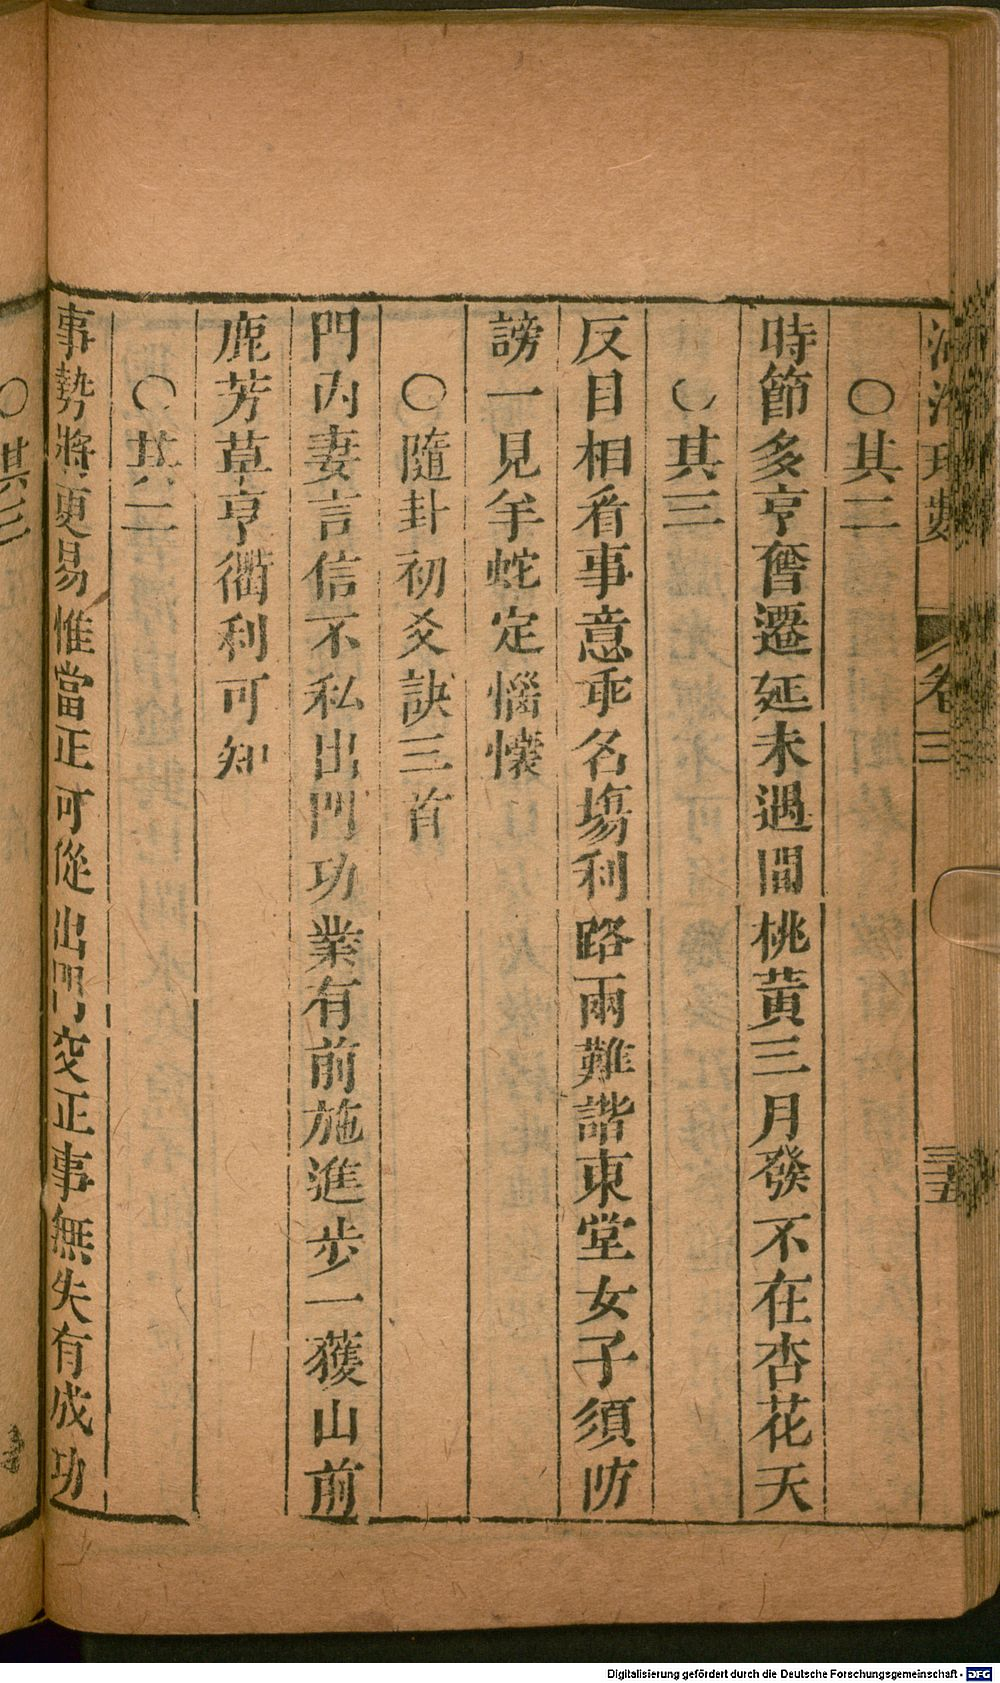 河洛理數 卷三 三五
○其二
時節多亨奮遷延未遇間桃黃三月發不在杏花天
○其三
反目相看事意乖名場利路兩難諧東堂女子須防
謗一見羊蛇定惱懷
○隨卦初爻訣三首
門內妻言信不私出門功業有前施進步一獲山前
鹿芳草亨衢利可知
○其二
事勢將更易惟當正可從出門交正事無失有成功
○其三
Digitalisierung gefördert durch die Deutsche Forschungsgemeinschaft - DFG